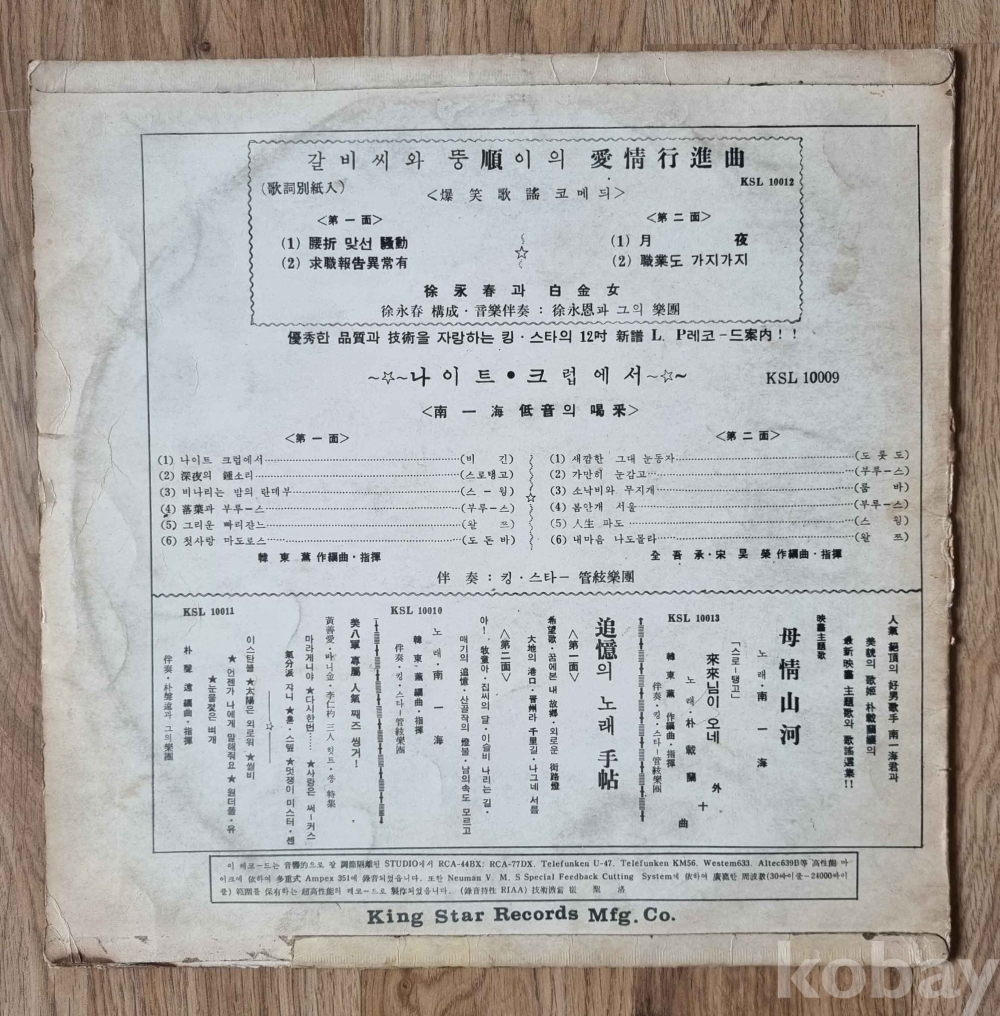 갈비씨와 뚱順이의 愛情行進曲
(歌詞別紙入) KSL 10012
<爆笑歌謠코메듸>
<第一面> <第二面>
(1) 腰折 맞선 騷動 (1) 月 夜
(2) 求職報告異常有 (2) 職業도 가지가지
徐永春과 白金女
徐永春 構成·音樂伴奏 : 徐永恩과 그의 樂團
優秀한 品質과 技術을 자랑하는 킹·스타의 12吋 新譜 L. P레코-드案內!!
~☆~나이트•크럽에서~☆~ KSL 10009
<南一海 低音의 喝采>
<第一面> <第二面>
(1) 나이트 크럽에서 (비 긴) (1) 새깜한 그대 눈동자 (도 돗 도)
(2) 深夜의 鍾소리 (스로탱고) (2) 가만히 눈감고 (부루-스)
(3) 비나리는 밤의 란데부 (스-윙) (3) 소낙비와 무지개 (룸 바)
(4) 落葉과 부루-스 (부루-스) (4) 봄안개 서울 (부루-스)
(5) 그리운 빠리잔느 (왈 쯔) (5) 人生 파도 (스 윙)
(6) 첫사랑 마도로스 (도돈바) (6) 내마음 나도몰라 (왈 쯔)
韓東薰 作編曲·指揮 全吾承·宋昊榮 作編曲·指揮
伴奏 : 킹·스타- 管絃樂團
人氣絕頂의 好男歌手 南一海君과
美貌의 歌姬 朴載蘭孃의
最新映畵 主題歌와 歌謠選集!!
映畵主題歌
母情山河
노래·南一海
KSL 10013
「스로-탱고」
來來님이 오네
노래·朴載蘭
外十曲
韓東薰 作編曲·指揮
伴奏·킹·스타-管絃樂團
追憶의 노래 手帖
KSL 10010
<第一面>
希望歌·꿈에본 내 故鄕·외로운 街路燈
大地의 港口·晋州라 千里길·나그네 서름
<第二面>
아! 牧童아·집씨의 달·이슬비 나리는 길·
매기의 追憶·신골작의 燈불·남의속도 모르고
노래·南一海
韓東薰 編曲·指揮
伴奏·킹·스타-管絃樂團
KSL 10011
美八軍 專屬 人氣 째즈 씽거!
黃善愛·바니金·李仁杓 三人 힛트·쏭 特集
마라게니야 ★다시한번…… ★사랑은 써-커스
氣分派 쟈니 ★혼·스텦 ★멋쟁이 미스터·센
이스탄불 ★太陽은 외로워 ★썸비
★언젠가 나에게 말해줘요 ★원더풀·유
★눈물젖은 벼개
朴聲遠 編曲·指揮
伴奏·朴聲遠과 그의樂團
이 레코-드는 音響的으로 잘 調節隔離된 STUDIO에서 RCA-44BX: RCA-77DX. Telefunken U-47. Telefunken KM56, Westem633. Altec639B等 高性能 마
이크에 依하여 多重式 Ampex 351에 錄音되었읍니다. 또한 Neuman V. M. S Special Feedback Cutting System에 依하여 廣範한 周波數(30싸이클-24000싸이
클) 範圍를 保有하는 超高性能의 레코-드로 製作되었읍니다. (錄音特性 RIAA) 技術擔當 崔聖洛
King Star Records Mfg. Co.
kobay